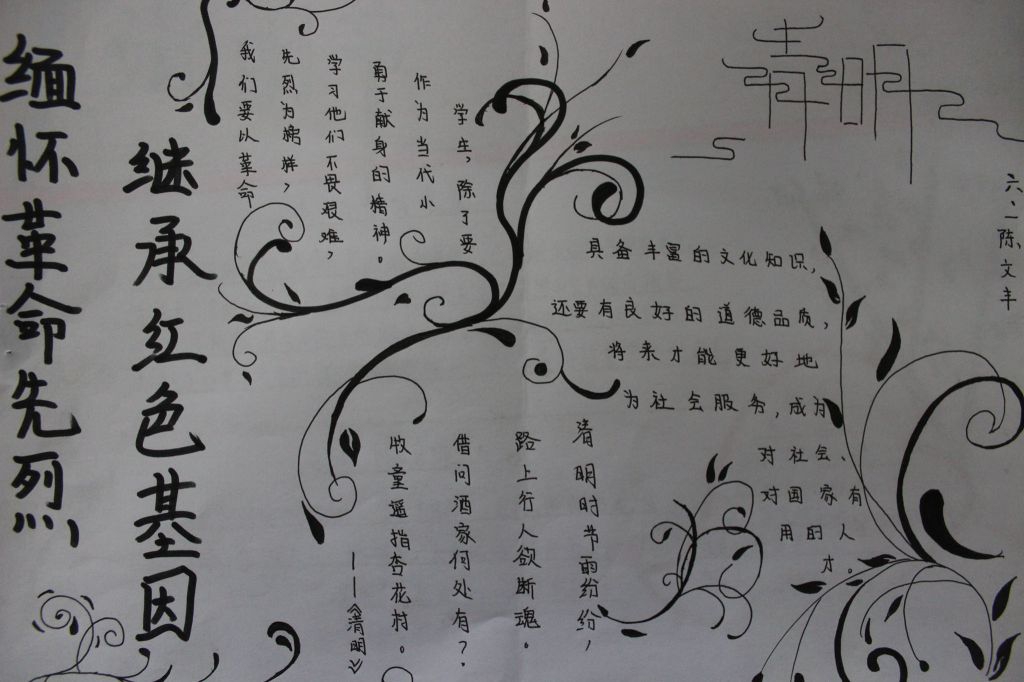 缅怀革命先烈
继承红色基因
清明
六、一陈文丰
我们要以革命
先烈为榜样,
学习他们不畏艰难,
勇于献身的精神。
作为当代小
学生,除了要
具备丰富的文化知识,
还要有良好的道德品质,
将来才能更好地
为社会服务,成为
对社会、
对国家有
用的人
才。
清明时节雨纷纷,
路上行人欲断魂。
借问酒家何处有?
牧童遥指杏花村。
——《清明》